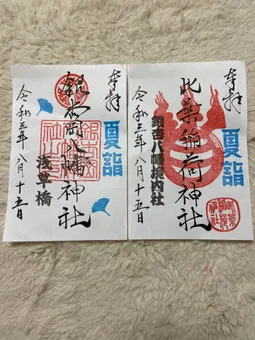 奉拝
夏詣
此葉稲荷神社
銀杏八幡境内社
令和三年八月十五日
奉拝
夏詣
銀杏岡八幡神社
浅草橋
令和三年八月十五日